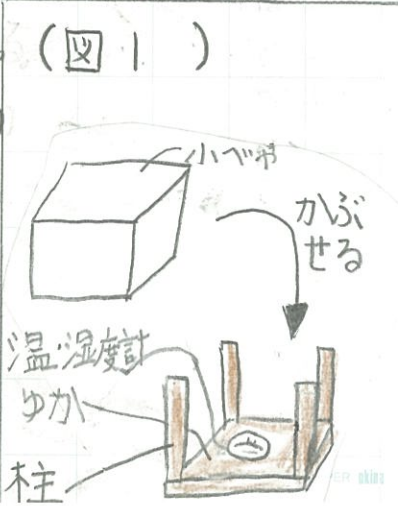 (図1)
小べや
かぶ
せる
温・湿度計
ゆか
柱